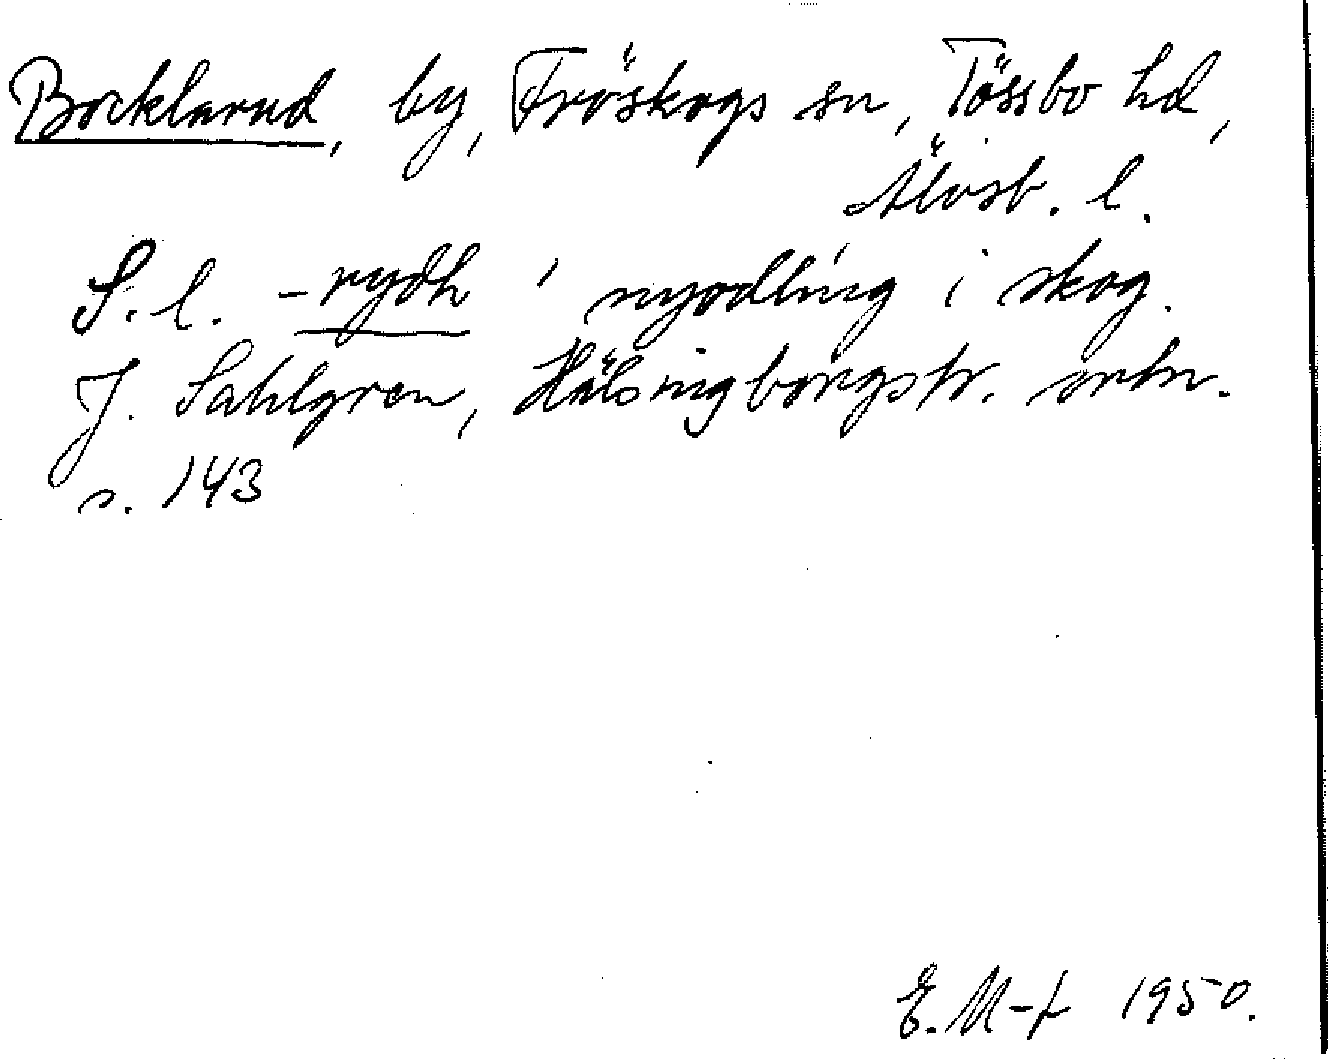 Bocklarud, by, Fröskogs sn, Tössbo hd,
Älvsb. l.
S.l. -rydh ' nyodling i skog.
J. Sahlgren, Hälsingborgstr. ortn.
s. 143
E. M-t 1950.